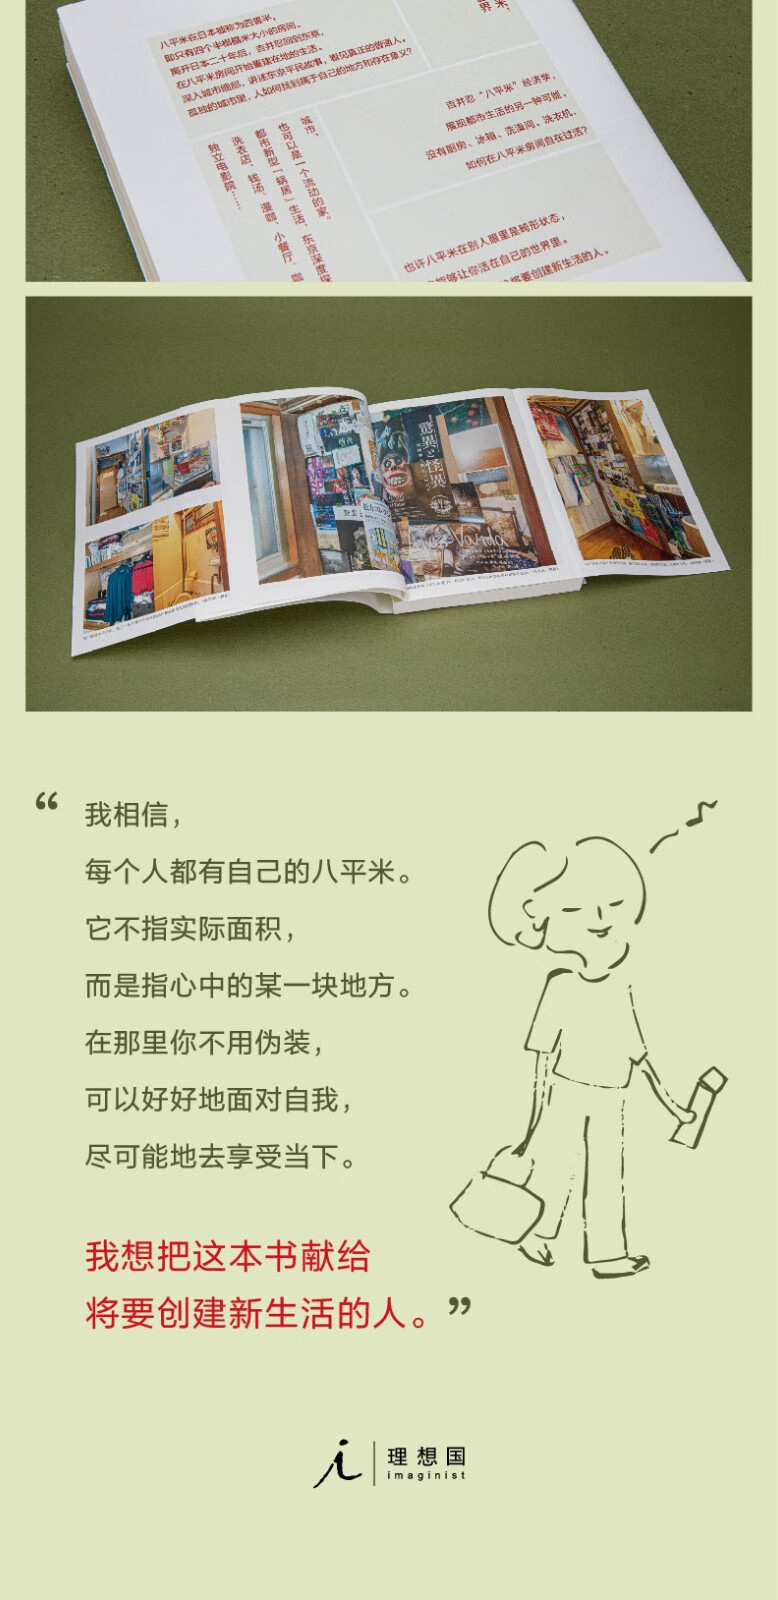 米，
世界
八平米在日本被称为四叠半，
即只有四个半榻榻米大小的房间。
离开日本二十年后，吉井忍回到东京，
在八平米房间开始重建在地的生活。
深入城市细部，讲述东京平民故事，看见真正的普通人。
孤独的城市里，人如何找到属于自己的地方和存在意义？
城市，
也可以是一个流动的家。
都市新型「蜗居」生活，东京深度探
洗衣店、钱汤、漫咖、小餐厅、咖
独立电影院……
吉井忍“八平米”经济学，
展现都市生活的另一种可能，
没有厨房、冰箱、洗澡间、洗衣机，
如何在八平米房间自在过活？
也许八平米在别人眼里是畸形状态，
能够让你活在自己的世界里。
将要创建新生活的人。
驚異と怪異
“我相信，
每个人都有自己的八平米。
它不指实际面积，
而是指心中的某一块地方。
在那里你不用伪装，
可以好好地面对自我，
尽可能地去享受当下。
我想把这本书献给
将要创建新生活的人。”
理想国
imaginist